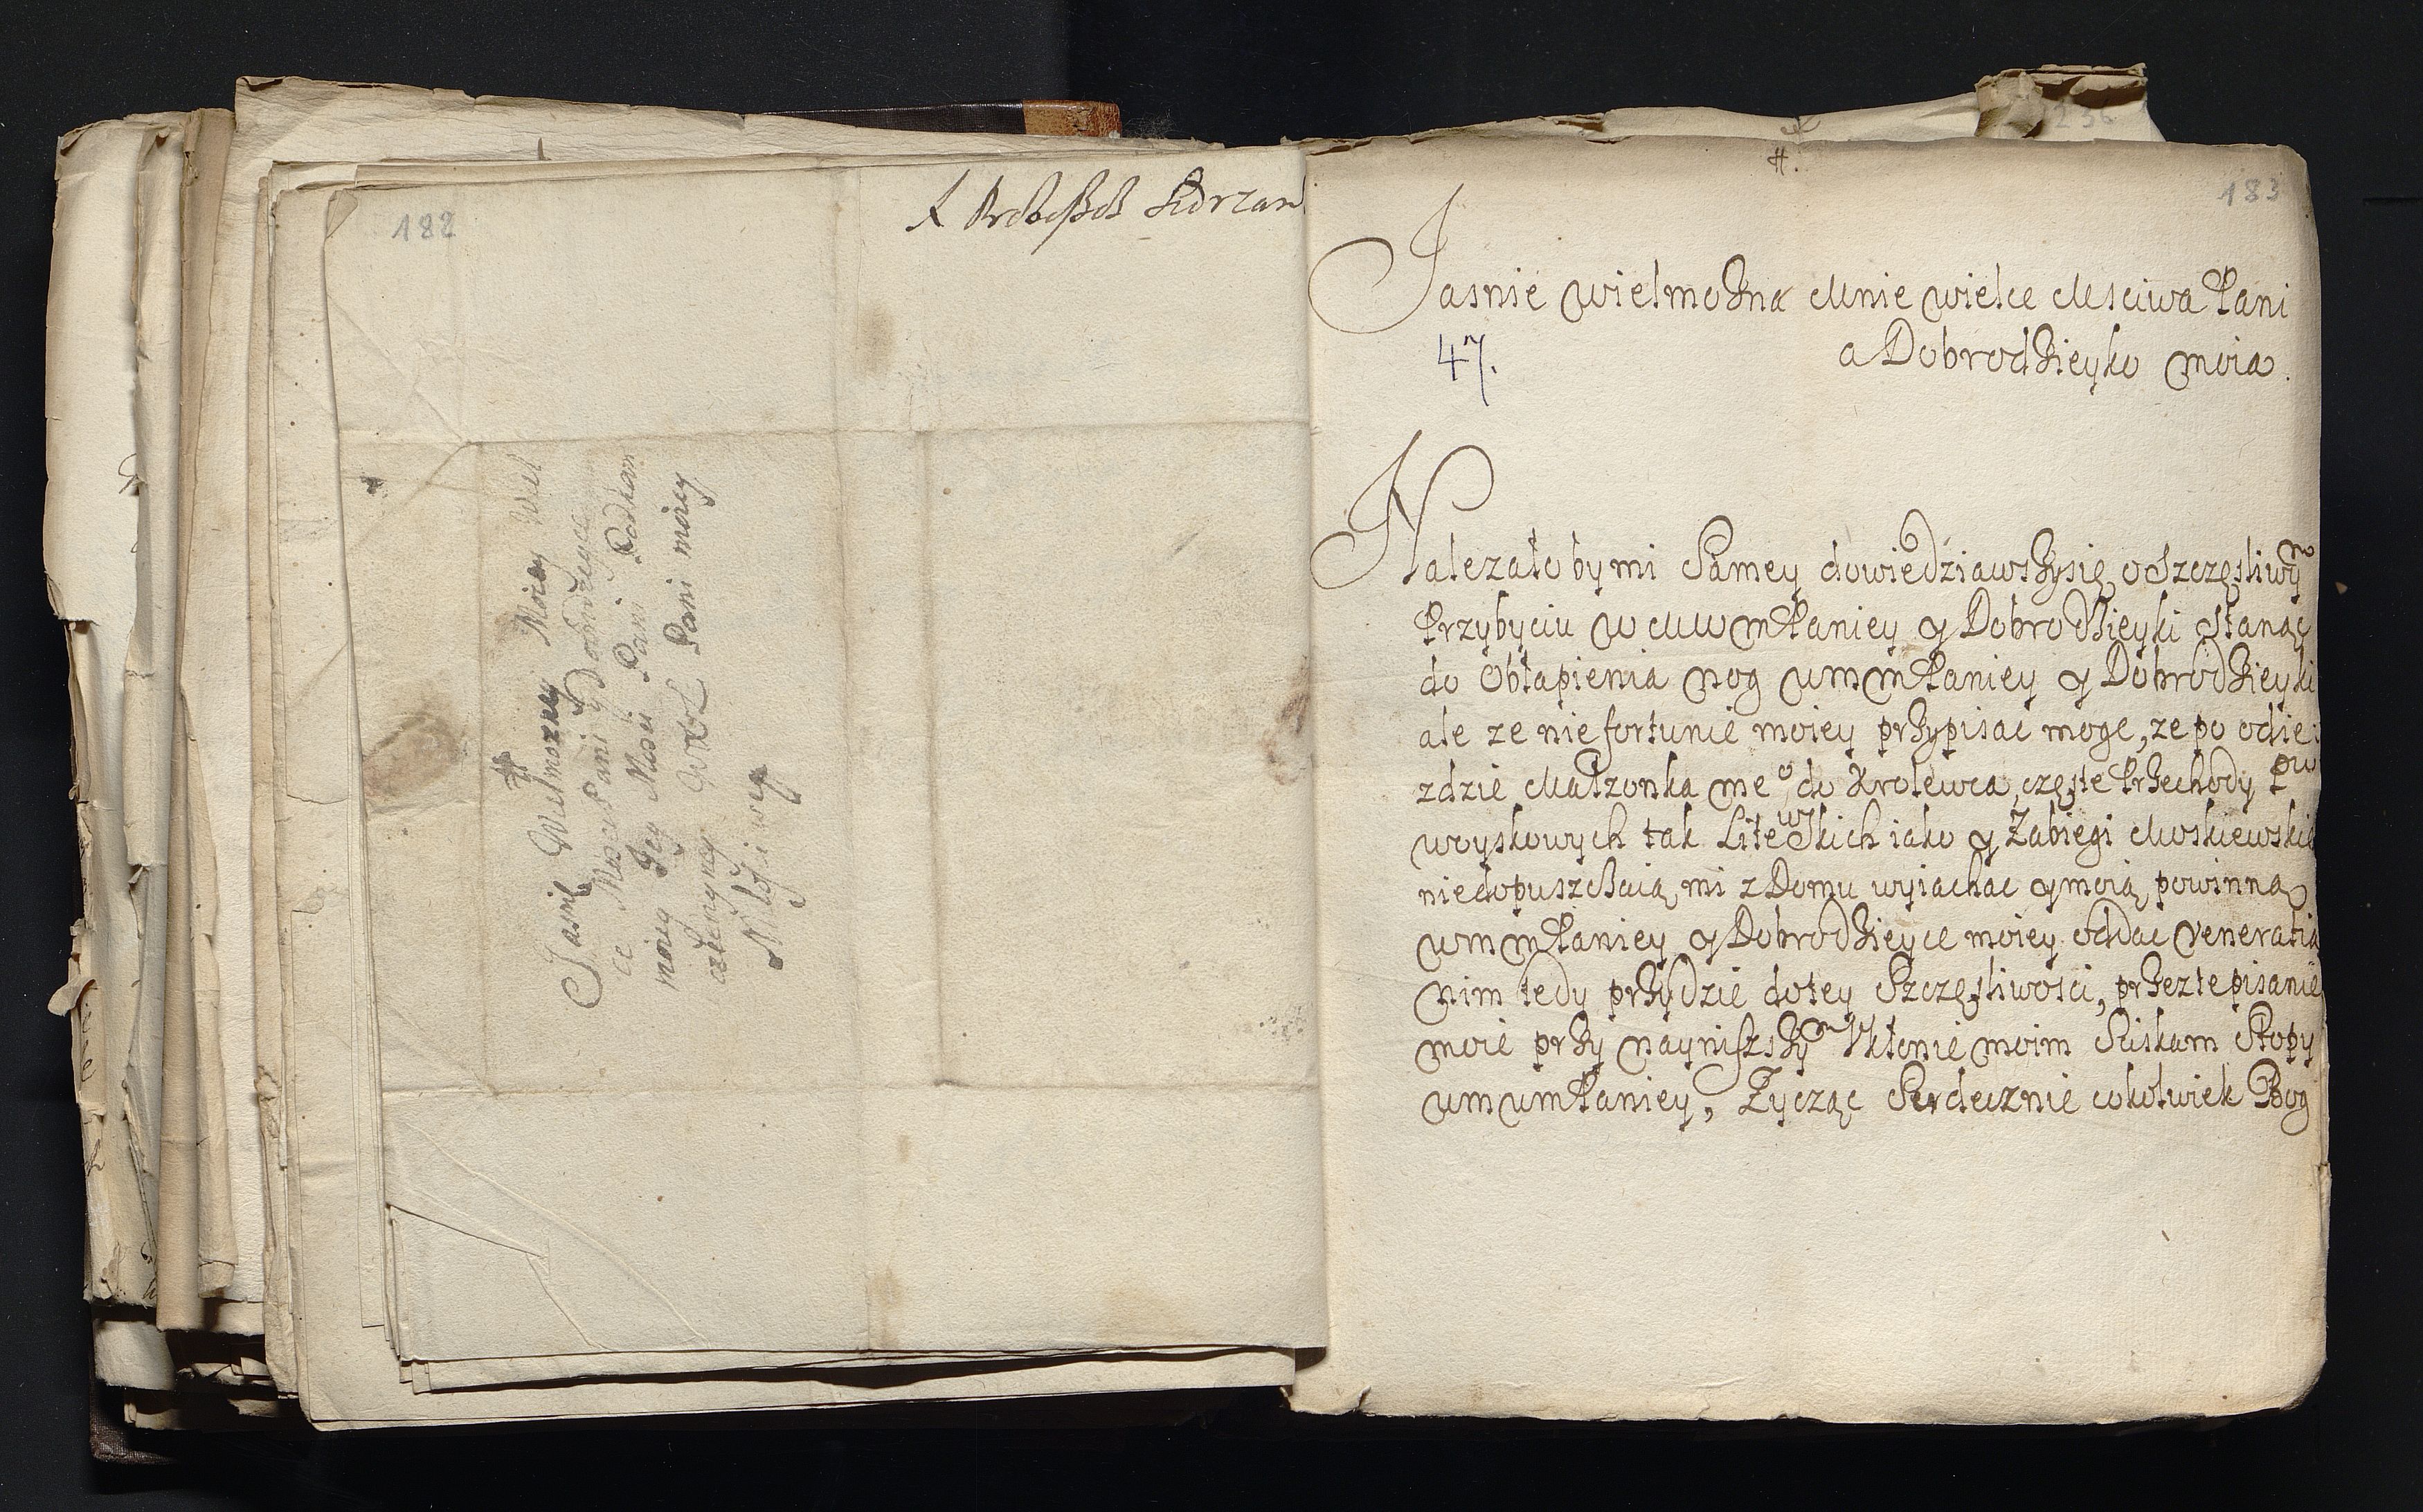 182
Jasnie Wielmozney Moiey Wiel
ce Mosci Pani y Dobrodzieyce
moiey Jey Mosci Pani Podkom
Pani moiey
Miłościwey
#.
183
Jasnie wielmożna Mnie wielce Msciwa Pani
a Dobrodzieyko moia.
47.
Nalezało by mi Samey dowiedziawszysię o Szczęsliwym
Przybyciu W M W m Paniey y Dobrodzieyki stanąc
do Obłapienia nog W m m Paniey y Dobrodzieyki
ale ze niefortunie moiey przypisac moge, ze po odiei
zdzie Małzonka meo do Krolewca, częste Przechody Pw
woyskowych tak Litewskich iako y Zabiegi Moskiewskie
niedopuszczaią mi z Domu wyiachac y moią powinną
W m m Paniey y Dobrodzieyce moiey oddac veneratią
nim tedy przydzie do tey Szczęsliwosci, przez te pisanie
moie przy nayniszszym Vkłonie moim Sciskam Stopy
W m W m Paniey, Zycząc Serdecznie cokolwiek Bog